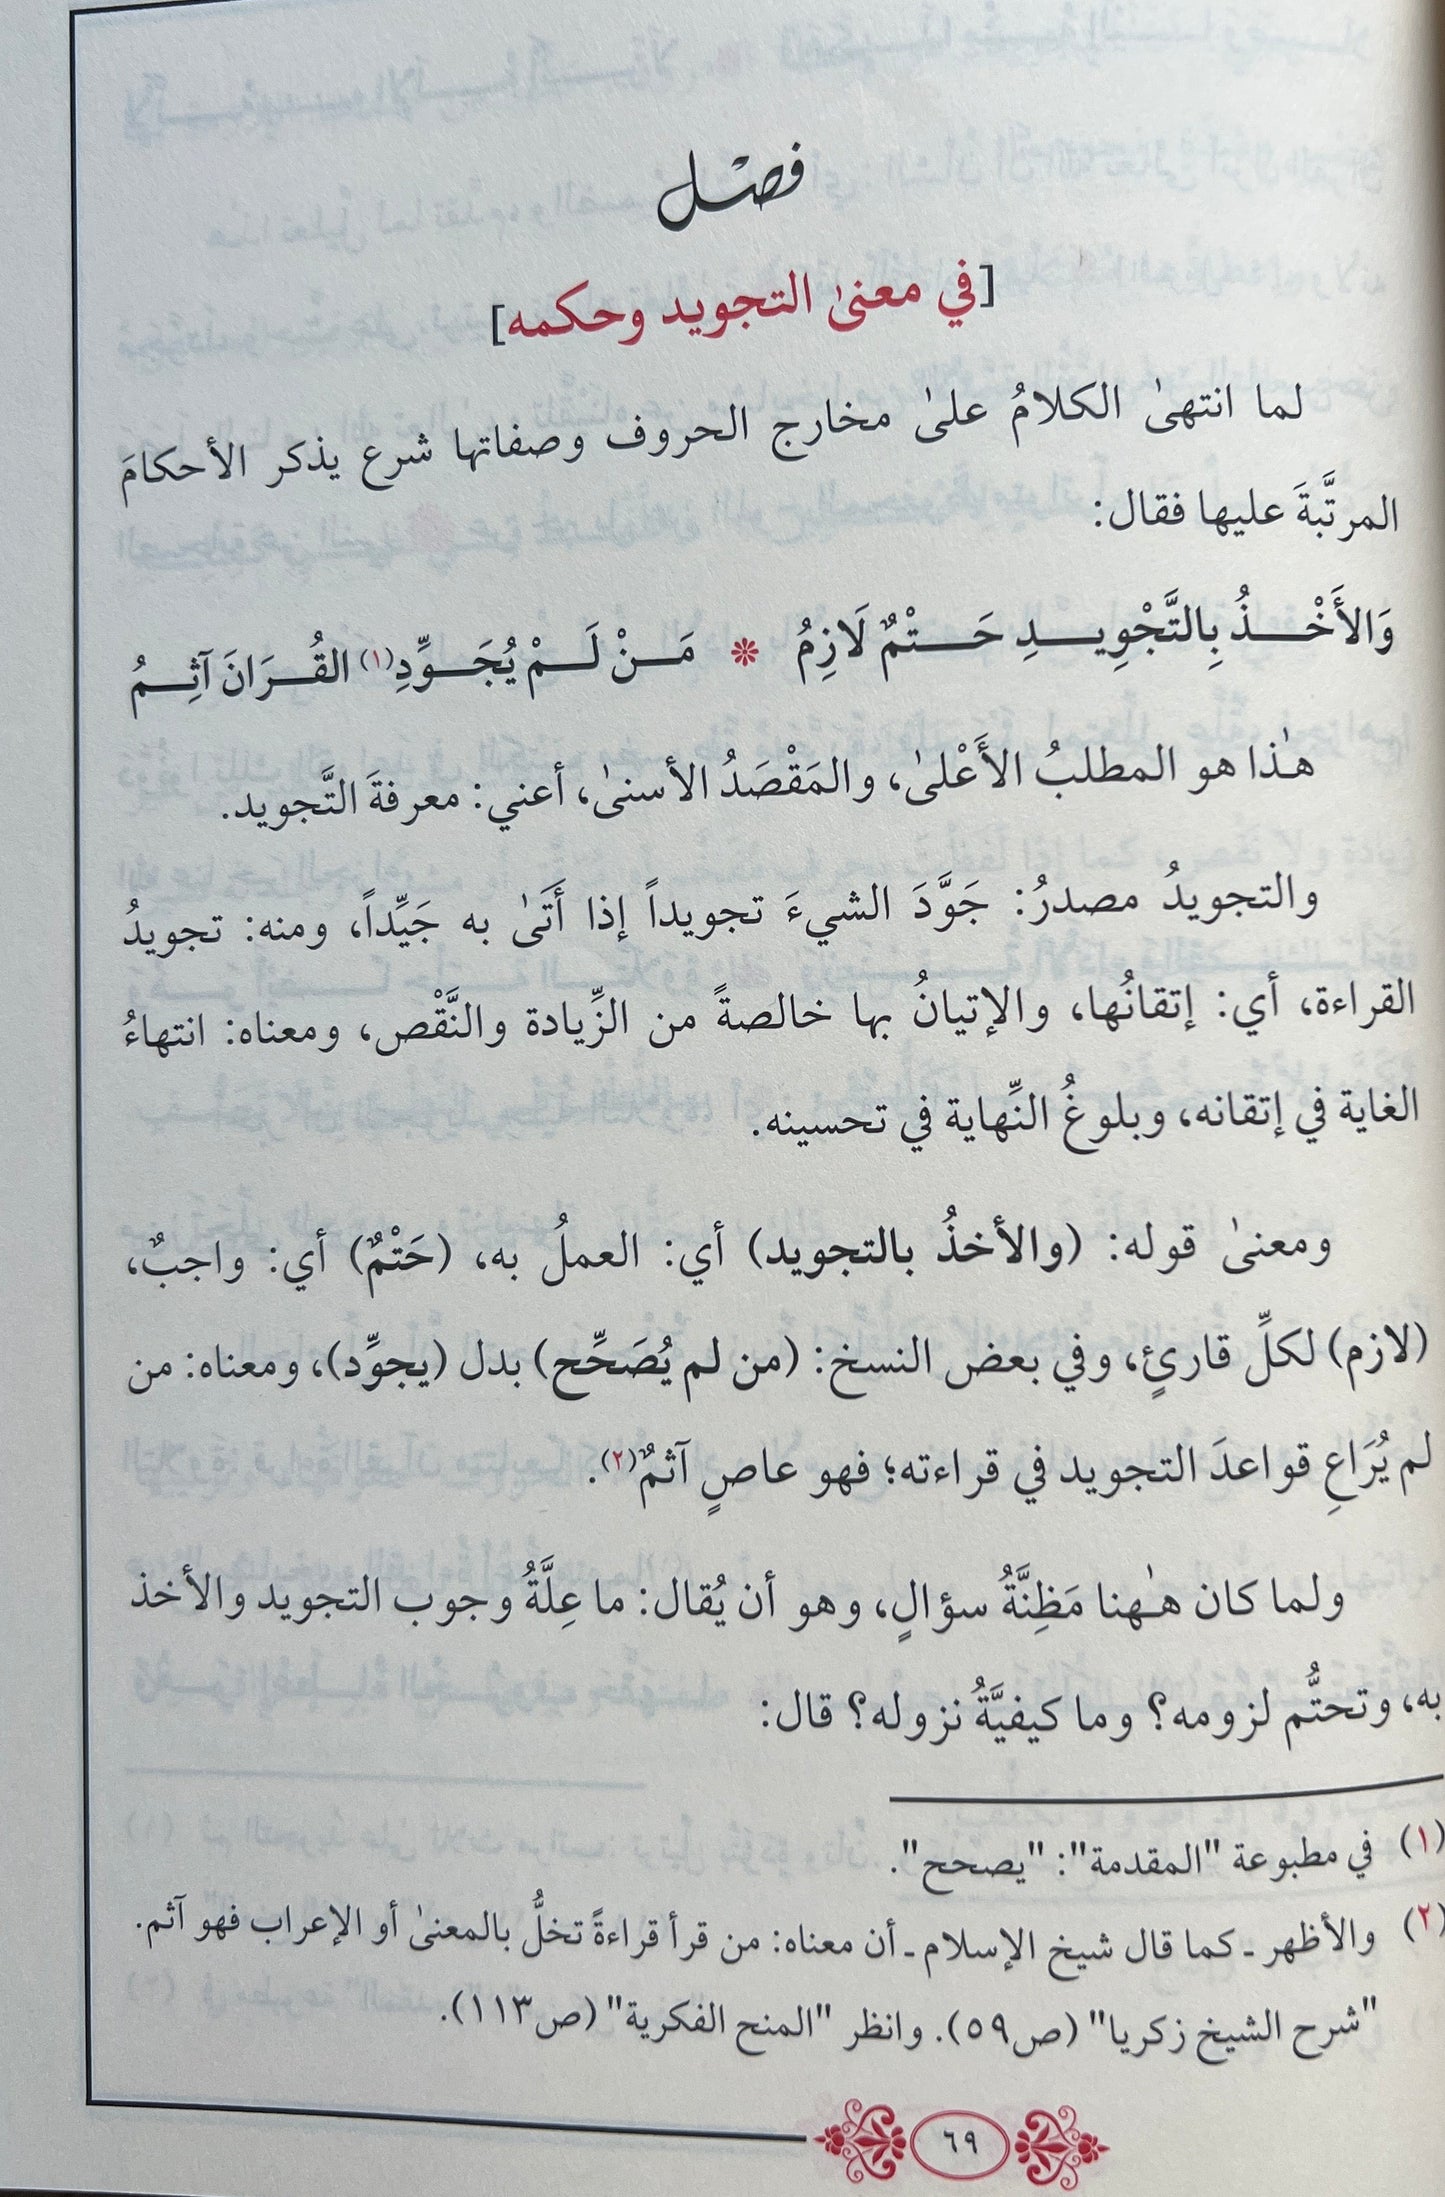 فصل
[في معنىٰ التجويد وحكمه]
لما انتهىٰ الكلامُ علىٰ مخارج الحروف وصفاتها شرع يذكر الأحكامَ
المرتَّبةَ عليها فقال:
وَالأَخْـــذُ بِالتَّجْوِيـــدِ حَـــتْمٌ لَازِمُ ❊ مَـــنْ لَـــمْ يُجَـــوِّدِ(١) القُـــرَانَ آثِـــمُ
هـٰذا هو المطلبُ الأَعْلىٰ، والمَقْصَدُ الأسنىٰ، أعني: معرفةَ التَّجويد.
والتجويدُ مصدرُ: جَوَّدَ الشيءَ تجويداً إذا أَتَىٰ به جَيِّداً، ومنه: تجويدُ
القراءة، أي: إتقانُها، والإتيانُ بها خالصةً من الزِّيادة والنَّقْص، ومعناه: انتهاءُ
الغاية في إتقانه، وبلوغُ النِّهاية في تحسينه.
ومعنىٰ قوله: (والأخذُ بالتجويد) أي: العملُ به، (حَتْمٌ) أي: واجبٌ،
(لازم) لكلِّ قارئٍ، وفي بعض النسخ: (من لم يُصَحِّح) بدل (يجوِّد)، ومعناه: من
لم يُرَاعِ قواعدَ التجويد في قراءته؛ فهو عاصٍ آثمٌ(٢).
ولما كان هـٰهنا مَظِنَّةُ سؤالٍ، وهو أن يُقال: ما عِلَّةُ وجوب التجويد والأخذ
به، وتحتُّم لزومه؟ وما كيفيَّةُ نزوله؟ قال:
(١) في مطبوعة "المقدمة": "يصحح".
(٢) والأظهر ـ كما قال شيخ الإسلام ـ أن معناه: من قرأ قراءةً تخلُّ بالمعنىٰ أو الإعراب فهو آثم.
"شرح الشيخ زكريا" (ص٥٩). وانظر "المنح الفكرية" (ص١١٣).
٦٩